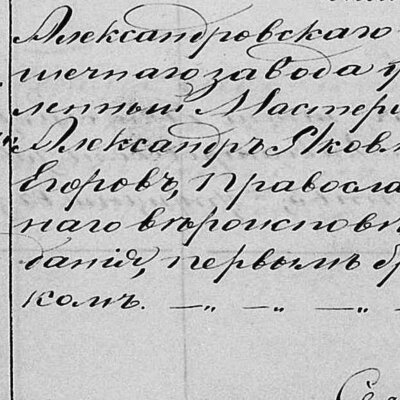 Александровскаго
шечнаго завода
ленный Мастеръ
Александръ Яковл
Егоровъ, Правосла
наго вѣроисповѣ
данія, первымъ бр
комъ.